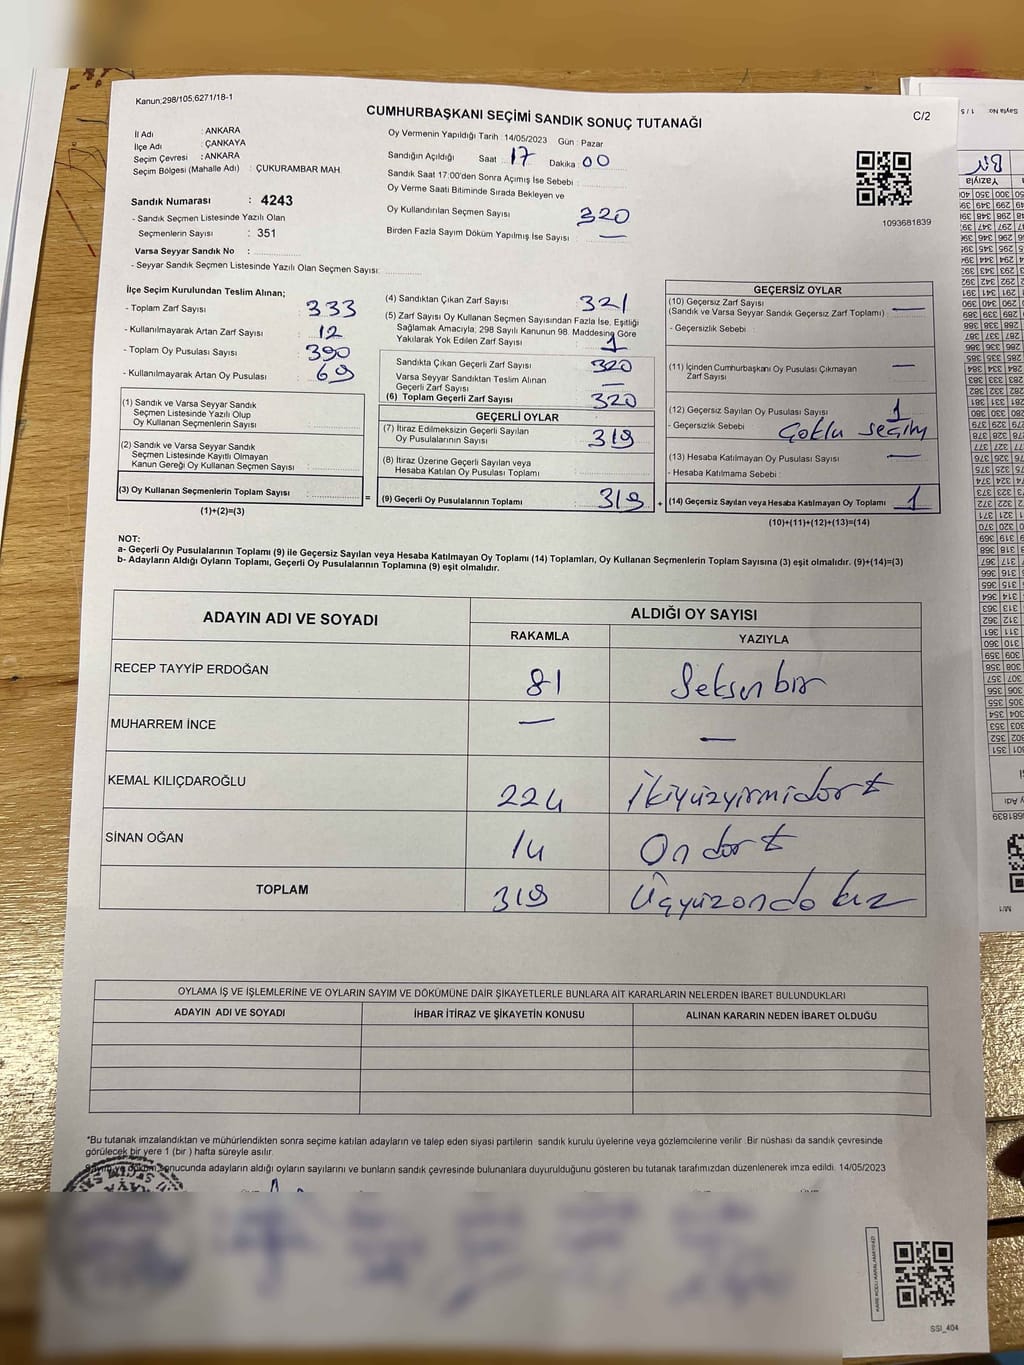 Kanun;298/105;6271/18-1
C/2
CUMHURBAŞKANI SEÇİMİ SANDIK SONUÇ TUTANAĞI
İl Adı : ANKARA
İlçe Adı : ÇANKAYA
Seçim Çevresi : ANKARA
Seçim Bölgesi (Mahalle Adı) : ÇUKURAMBAR MAH.
Sandık Numarası : 4243
- Sandık Seçmen Listesinde Yazılı Olan
Seçmenlerin Sayısı : 351
Varsa Seyyar Sandık No :
- Seyyar Sandık Seçmen Listesinde Yazılı Olan Seçmen Sayısı:
Oy Vermenin Yapıldığı Tarih : 14/05/2023 Gün : Pazar
Sandığın Açıldığı Saat : 17 Dakika : 00
Sandık Saat 17:00'den Sonra Açımış İse Sebebi :
Oy Verme Saati Bitiminde Sırada Bekleyen ve
Oy Kullandırılan Seçmen Sayısı 320
Birden Fazla Sayım Döküm Yapılmış İse Sayısı : —
1093681839
İlçe Seçim Kurulundan Teslim Alınan;
- Toplam Zarf Sayısı : 333
- Kullanılmayarak Artan Zarf Sayısı : 12
- Toplam Oy Pusulası Sayısı : 390
- Kullanılmayarak Artan Oy Pusulası : 69
(1) Sandık ve Varsa Seyyar Sandık
Seçmen Listesinde Yazılı Olup
Oy Kullanan Seçmenlerin Sayısı :
(2) Sandık ve Varsa Seyyar Sandık
Seçmen Listesinde Kayıtlı Olmayan
Kanun Gereği Oy Kullanan Seçmen Sayısı :
(3) Oy Kullanan Seçmenlerin Toplam Sayısı :
(1)+(2)=(3)
=
(4) Sandıktan Çıkan Zarf Sayısı : 321
(5) Zarf Sayısı Oy Kullanan Seçmen Sayısından Fazla İse, Eşitliği
Sağlamak Amacıyla; 298 Sayılı Kanunun 98. Maddesine Göre
Yakılarak Yok Edilen Zarf Sayısı : 1
Sandıkta Çıkan Geçerli Zarf Sayısı : 320
Varsa Seyyar Sandıktan Teslim Alınan
Geçerli Zarf Sayısı : —
(6) Toplam Geçerli Zarf Sayısı : 320
GEÇERLİ OYLAR
(7) İtiraz Edilmeksizin Geçerli Sayılan
Oy Pusulalarının Sayısı : 319
(8) İtiraz Üzerine Geçerli Sayılan veya
Hesaba Katılan Oy Pusulası Toplamı :
(9) Geçerli Oy Pusulalarının Toplamı : 319
+
GEÇERSİZ OYLAR
(10) Geçersiz Zarf Sayısı : —
(Sandık ve Varsa Seyyar Sandık Geçersiz Zarf Toplamı)
- Geçersizlik Sebebi :
(11) İçinden Cumhurbaşkanı Oy Pusulası Çıkmayan
Zarf Sayısı : —
(12) Geçersiz Sayılan Oy Pusulası Sayısı : 1
- Geçersizlik Sebebi : Çoklu seçim
(13) Hesaba Katılmayan Oy Pusulası Sayısı : —
- Hesaba Katılmama Sebebi :
(14) Geçersiz Sayılan veya Hesaba Katılmayan Oy Toplamı : 1
(10)+(11)+(12)+(13)=(14)
NOT:
a- Geçerli Oy Pusulalarının Toplamı (9) ile Geçersiz Sayılan veya Hesaba Katılmayan Oy Toplamı (14) Toplamları, Oy Kullanan Seçmenlerin Toplam Sayısına (3) eşit olmalıdır. (9)+(14)=(3)
b- Adayların Aldığı Oyların Toplamı, Geçerli Oy Pusulalarının Toplamına (9) eşit olmalıdır.
ADAYIN ADI VE SOYADI
ALDIĞI OY SAYISI
RAKAMLA YAZIYLA
RECEP TAYYİP ERDOĞAN 81 Seksen bir
MUHARREM İNCE — —
KEMAL KILIÇDAROĞLU 224 İkiyüzyirmidört
SİNAN OĞAN 14 On dört
TOPLAM 319 Üçyüzondokuz
OYLAMA İŞ VE İŞLEMLERİNE VE OYLARIN SAYIM VE DÖKÜMÜNE DAİR ŞİKAYETLERLE BUNLARA AİT KARARLARIN NELERDEN İBARET BULUNDUKLARI
ADAYIN ADI VE SOYADI İHBAR İTİRAZ VE ŞİKAYETİN KONUSU ALINAN KARARIN NEDEN İBARET OLDUĞU
*Bu tutanak imzalandıktan ve mühürlendikten sonra seçime katılan adayların ve talep eden siyasi partilerin sandık kurulu üyelerine veya gözlemcilerine verilir. Bir nüshası da sandık çevresinde
görülecek bir yere 1 (bir ) hafta süreyle asılır.
Sayım ve döküm sonucunda adayların aldığı oyların sayılarını ve bunların sandık çevresinde bulunanlara duyurulduğunu gösteren bu tutanak tarafımızdan düzenlenerek imza edildi. 14/05/2023
SSI_404